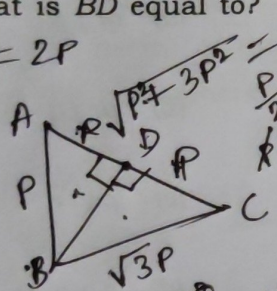 at is BD equal to?
= 2P
√P²+3P² =
P
A
P
D
P
P
C
B
√3P